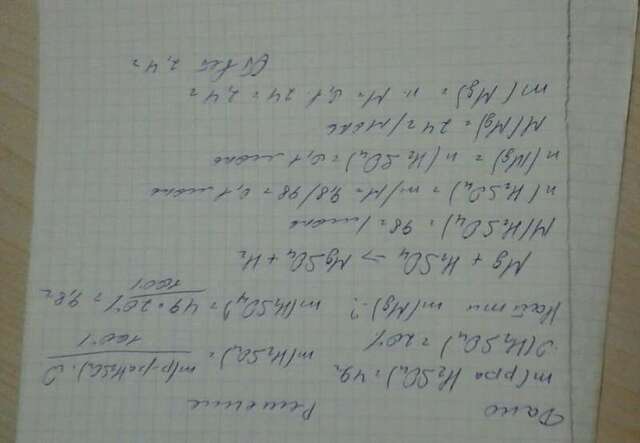 Дано Решение
m(р-ра H₂SO₄) = 49г m(H₂SO₄) = m(р-раH₂SO₄)·ω / 100%
ω(H₂SO₄) = 20%
Найти m(Mg)-? m(H₂SO₄) = 49·20% / 100% = 9,8г
Mg + H₂SO₄ → MgSO₄ + H₂
M(H₂SO₄) = 98г/моль
n(H₂SO₄) = m/M = 9,8/98 = 0,1 моль
n(Mg) = n(H₂SO₄) = 0,1 моль
M(Mg) = 24г/моль
m(Mg) = n·M = 0,1·24 = 2,4г
Ответ 2,4г